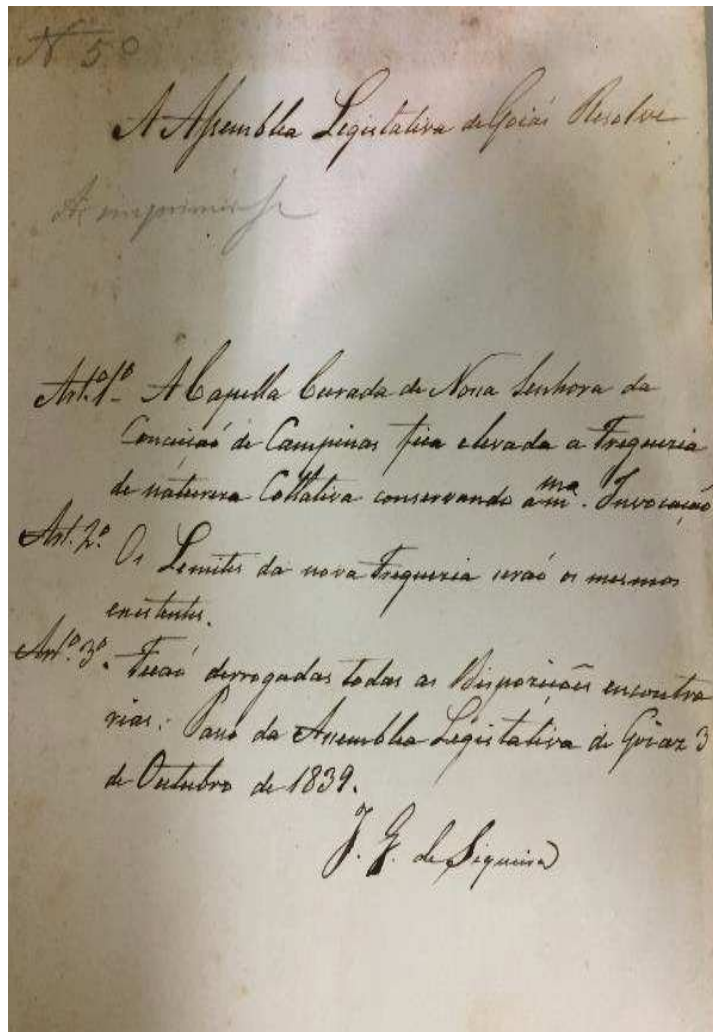 N 5º
A Assemblea Legislativa de Goiás Resolve
A imprimir-se
Art.º 1º - A Capella Curada de Nossa Senhora da
Conceicaó de Campinas fica elevada a Freguezia
de natureza Collativa conservando a mma. Invocação
Art. 2º. Os Lemites da nova Freguezia seraó os mesmos
existentes.
Art.º 3º. Ficaó derrogadas todas as Disposições encontra
rias. Paço da Assemblea Legislativa de Goiaz 3
de Outubro de 1839.
J. G. de Siqueira